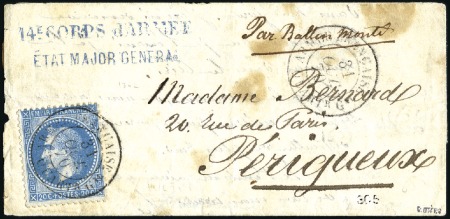 14e CORPS D'ARMÉE
ÉTAT MAJOR GÉNÉRAL
Par Ballon Monté
Madame Bernard
20, rue de Paris
Périgueux
305